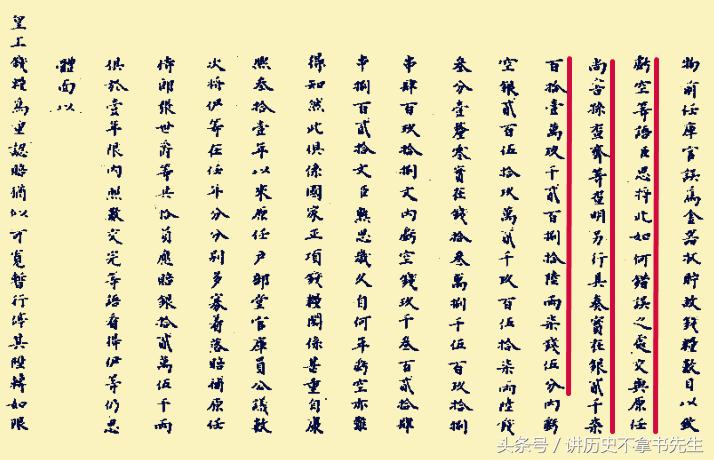 物前任庫官誤爲金器狀貯故錢糧數目以致
虧空等語臣思將此如何錯誤之處交與原任
尚書孫查齊等查明另行具奏實在銀貳千柒
百拾壹萬玖千貳百捌拾陸兩柒錢伍分內虧
空銀貳百伍拾玖萬貳千玖百伍拾柒兩陸錢
叁分壹釐零實在錢拾叁萬捌千伍百玖拾捌
串肆百玖拾捌文內虧空錢玖千叁百貳拾肆
串捌百貳拾文臣熟思歲久自何年虧空亦難
得知然此俱係國家正項錢糧關係甚重自康
熙叁拾壹年以來原任戶部堂官庫員公議數
次將伊等在任年分分別多寡着落賠補原任
侍郎張世爵等共拾員應賠銀拾貳萬伍千兩
俱於壹年限內照數交完等語看得伊等仍思
體面以
皇上錢糧爲重認賠猶似可寬暫行停其陞轉如限
头条号 / 讲历史不拿书先生